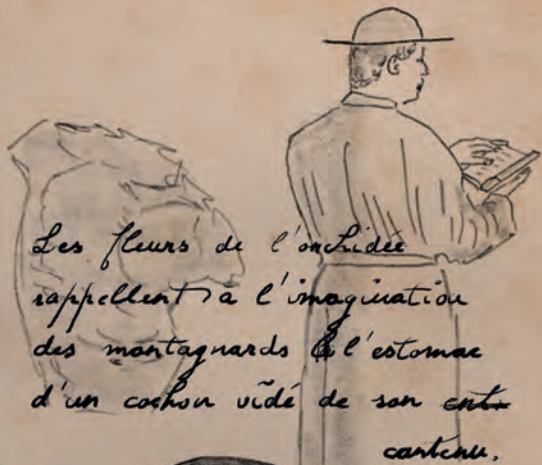 Les fleurs de l'orchidée
rappellent à l'imagination
des montagnards l'estomac
d'un cochon vidé de son cont.
contenu.